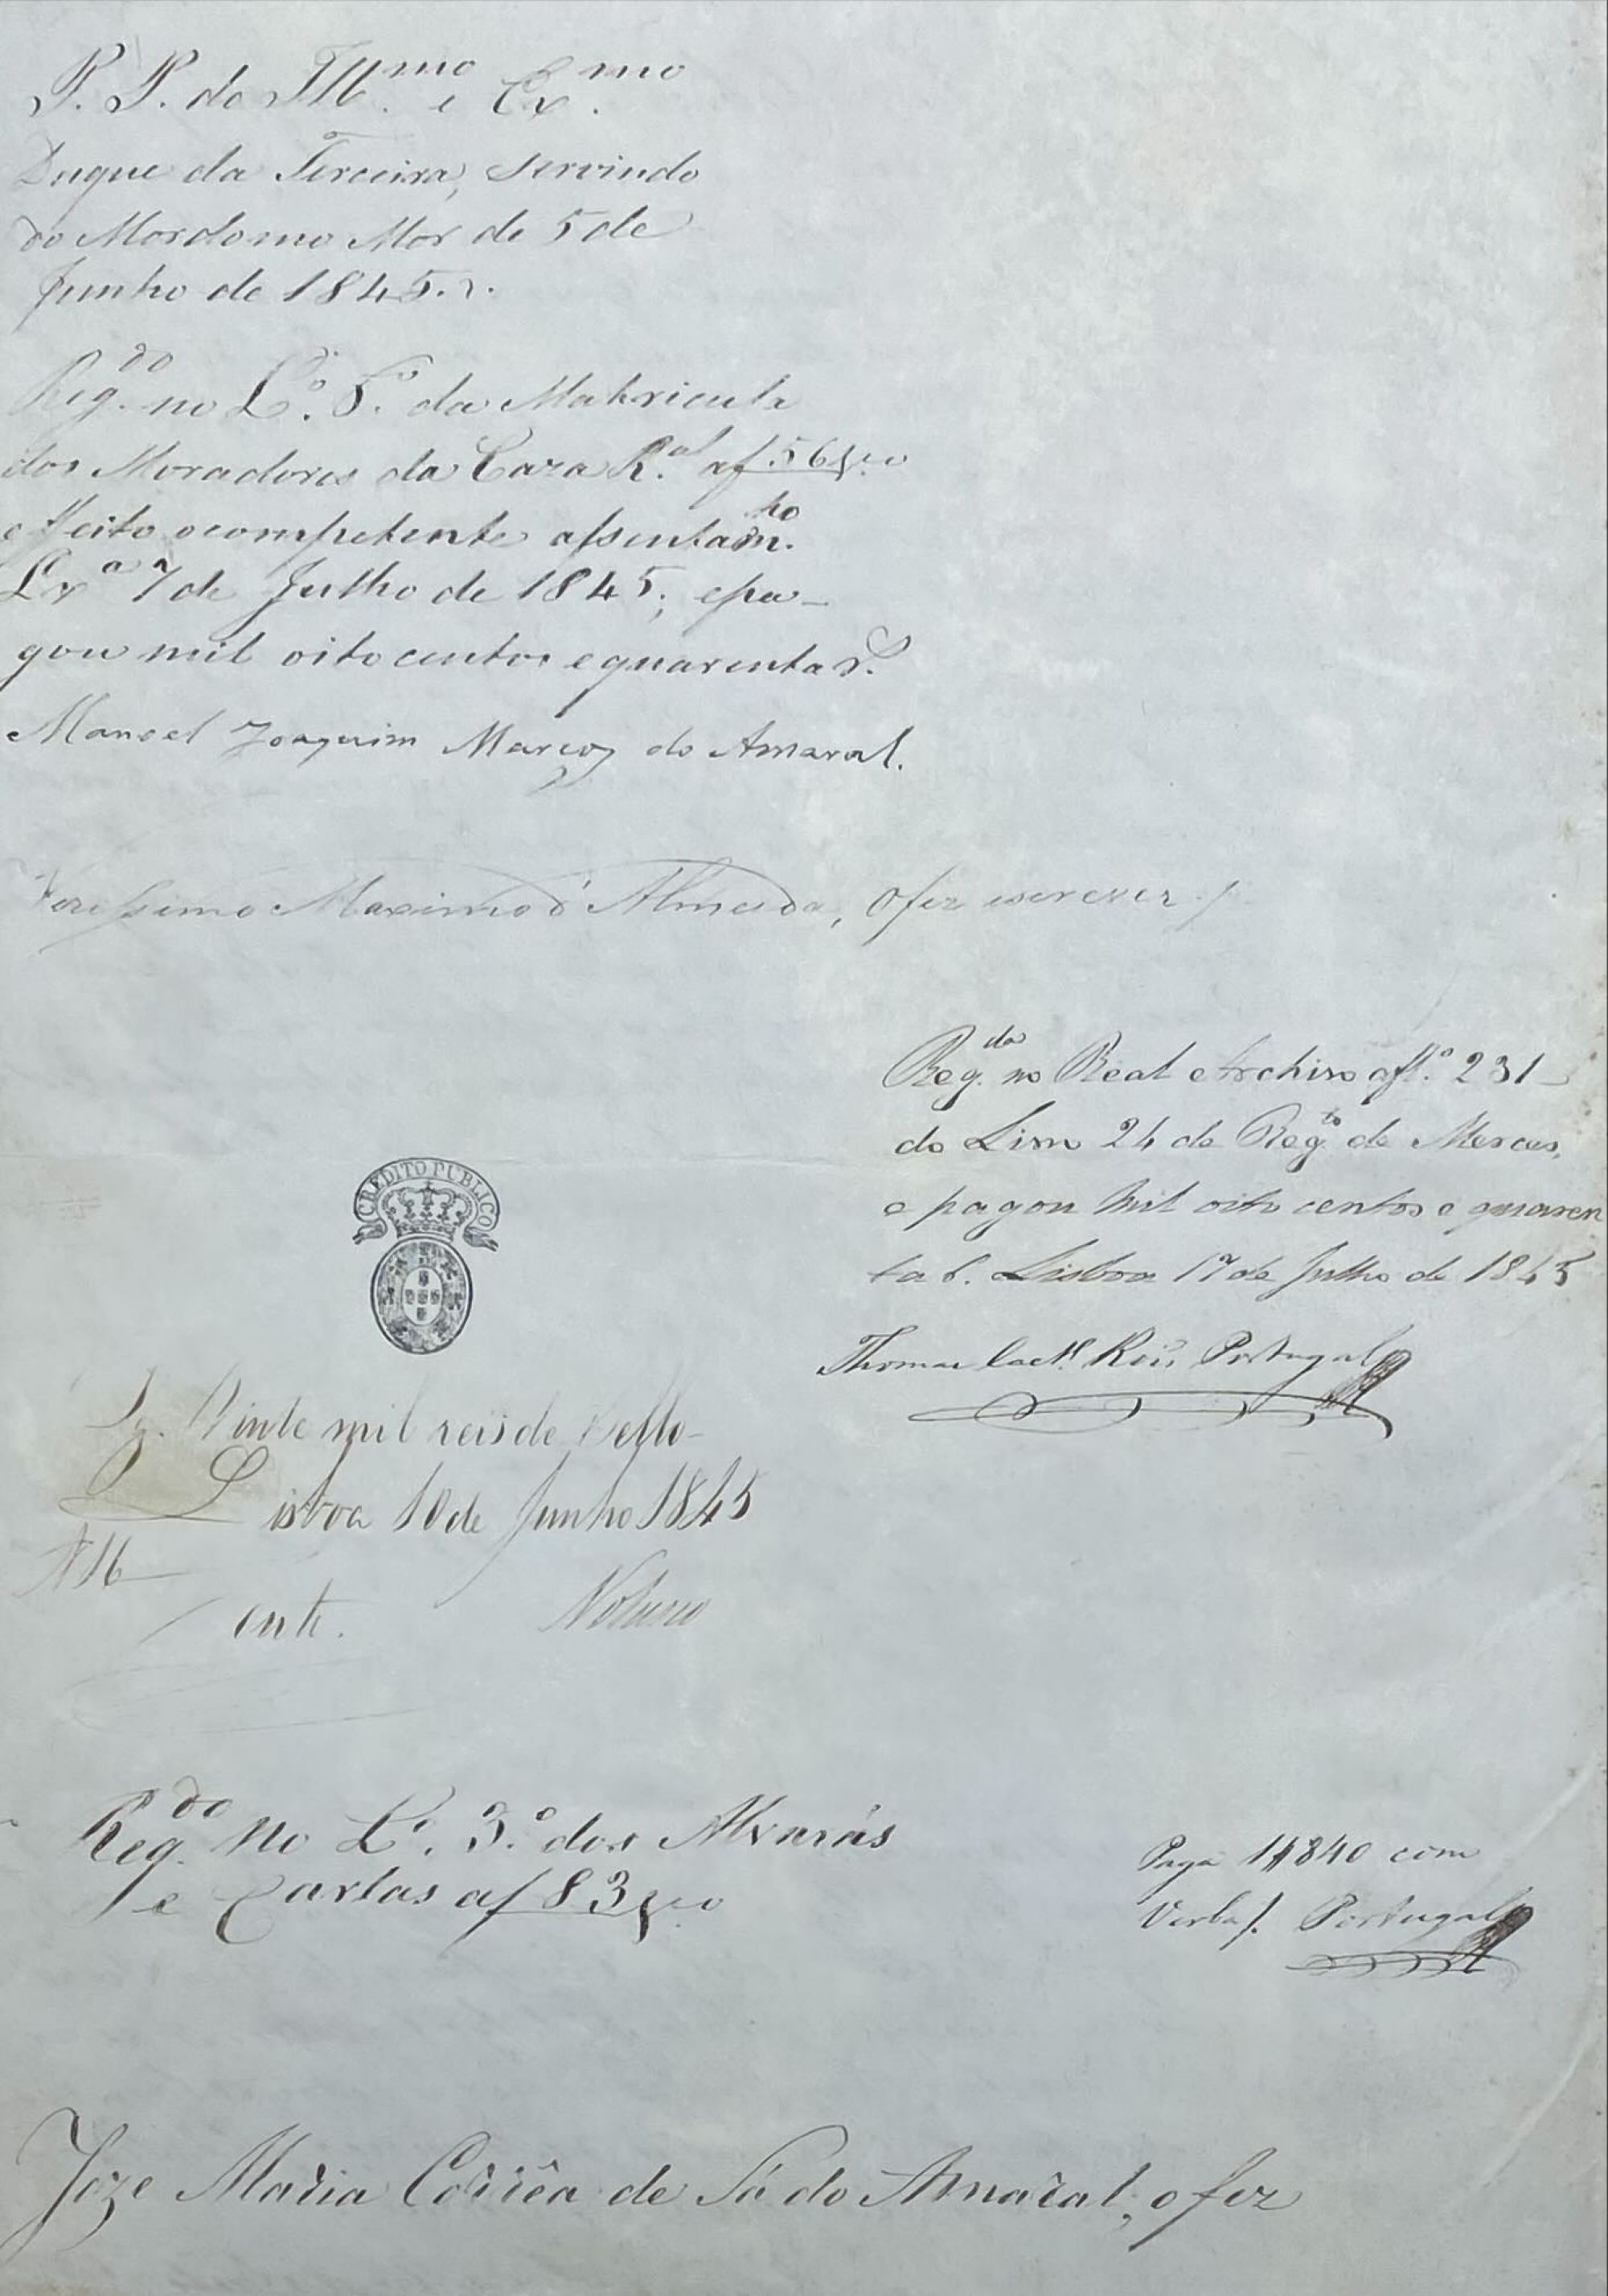 P. P. do Ill.mo e Ex.mo
Duque da Terceira, servindo
do Mordomo Mór de 5 de
Junho de 1845.
Reg.do no L.o 5.o da Matricula
dos Moradores da Caza R.al af 56
e feito o competente assentam.to
Lx.a 7 de Julho de 1845; e pa-
gou mil oito centos e quarenta r.s
Manoel Joaquim Marcos do Amaral.
Verissimo Maximo d'Almeida, o fez escrever
Reg.do no Real Archivo a fl.o 231
do Livro 24 de Reg.to de Merces,
e pagou mil oito centos e quaren
ta r. Lisboa 17 de Julho de 1845
Thomaz Portugal
CREDITO PUBLICO
Vinte mil reis de Sello
Lisboa 10 de Junho 1845
N 16
Reg.do no L.o 3.o dos Alvarás
e Cartas af 83
Paga 1$840 com
Verba Portugal
Joze Maria Corrêa de Sá do Amaral, o fez